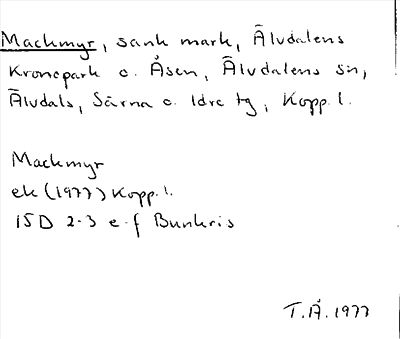 Mackmyr, sank mark, Älvdalens
Kronopark o. Åsen, Älvdalens sn,
Älvdals, Särna o. Idre tg, Kopp. l.
Mackmyr
ek (1977) Kopp. l.
15D 2-3 e-f Bunkris
T.Å. 1977